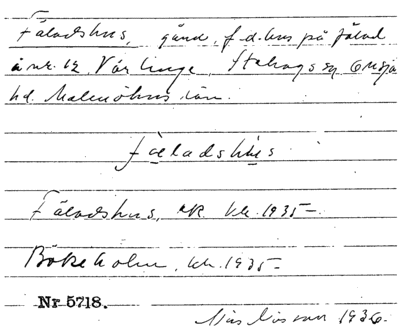 Fäladshus, gård, f.d. hus på fälad
å nr. 12 Vår linge, Stehags sn Onsjö
hd. Malmöhus län.
fäladshus
Fäladshus, ek kh. 1935 –
Bökeholm, kh. 1935 –
Nr 5718.
Nils Nilsson 1936.